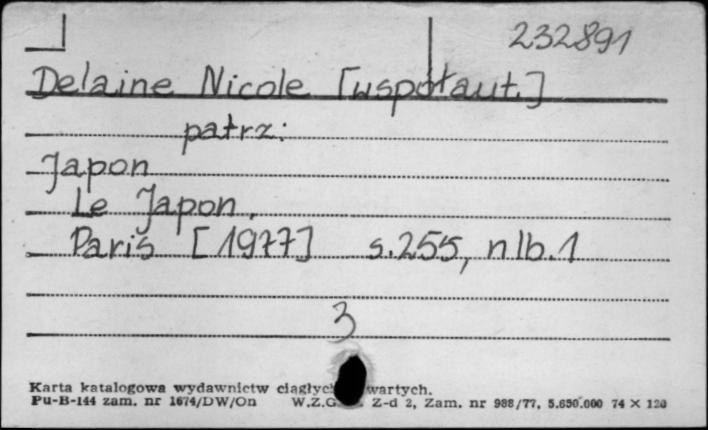 232891
Delaine Nicole [współaut.]
patrz:
Japon
Le Japon.
Paris [1977] s.255, nlb.1
3
Karta katalogowa wydawnictw ciągłych wartych.
Pu-B-144 zam. nr 1674/DW/On W.Z.G. Z-d 2, Zam. nr 988/77, 5.650.000 74 × 120